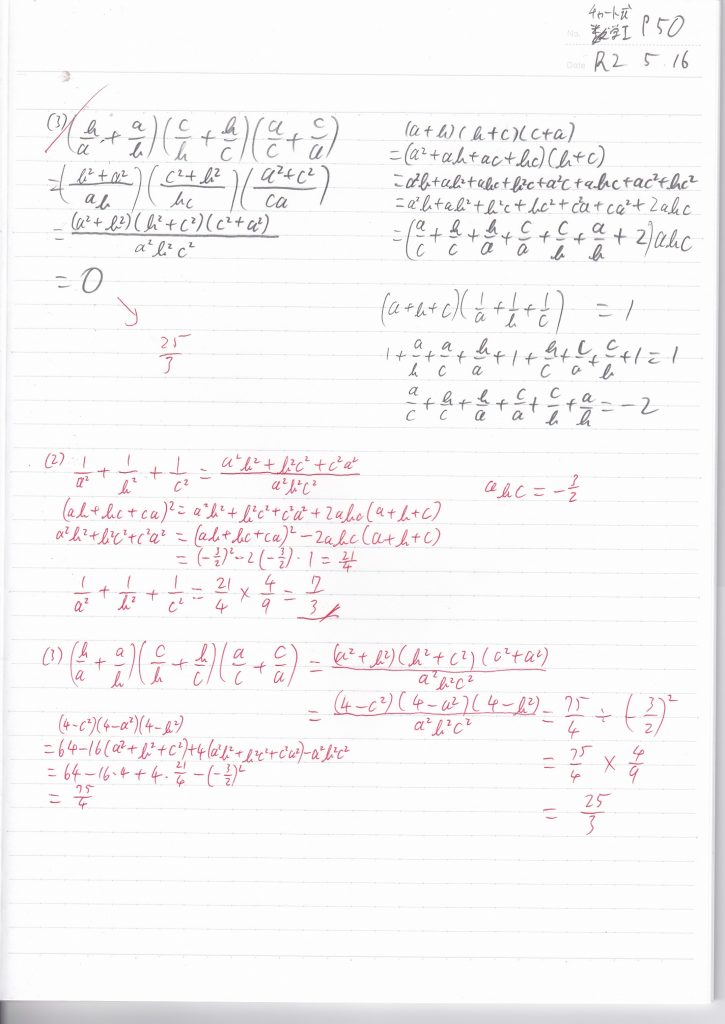 チャート式
No. 数学I P50
Date R2 5 16
(3) (b/a + a/b)(c/b + b/c)(a/c + c/a)
= (b²+a²/ab)(c²+b²/bc)(a²+c²/ca)
= (a²+b²)(b²+c²)(c²+a²)/a²b²c²
= 0
25/3
(a+b)(b+c)(c+a)
= (a²+ab+ac+bc)(b+c)
= a²b+ab²+abc+b²c+a²c+abc+ac²+bc²
= a²b+ab²+b²c+bc²+c²a+ca²+2abc
= (a/c + b/c + b/a + c/a + c/b + a/b + 2)abc
(a+b+c)(1/a + 1/b + 1/c) = 1
1 + a/b + a/c + b/a + 1 + b/c + c/a + c/b + 1 = 1
a/c + b/c + b/a + c/a + c/b + a/b = -2
(2) 1/a² + 1/b² + 1/c² = a²b²+b²c²+c²a²/a²b²c²
abc = -3/2
(ab+bc+ca)² = a²b²+b²c²+c²a²+2abc(a+b+c)
a²b²+b²c²+c²a² = (ab+bc+ca)²-2abc(a+b+c)
= (-3/2)²-2(-3/2)·1 = 21/4
1/a² + 1/b² + 1/c² = 21/4 × 4/9 = 7/3
(3) (b/a + a/b)(c/b + b/c)(a/c + c/a) = (a²+b²)(b²+c²)(c²+a²)/a²b²c²
= (4-c²)(4-a²)(4-b²)/a²b²c² = 75/4 ÷ (-3/2)²
= 75/4 × 4/9
= 25/3
(4-c²)(4-a²)(4-b²)
= 64-16(a²+b²+c²)+4(a²b²+b²c²+c²a²)-a²b²c²
= 64-16·4+4·21/4-(-3/2)²
= 75/4